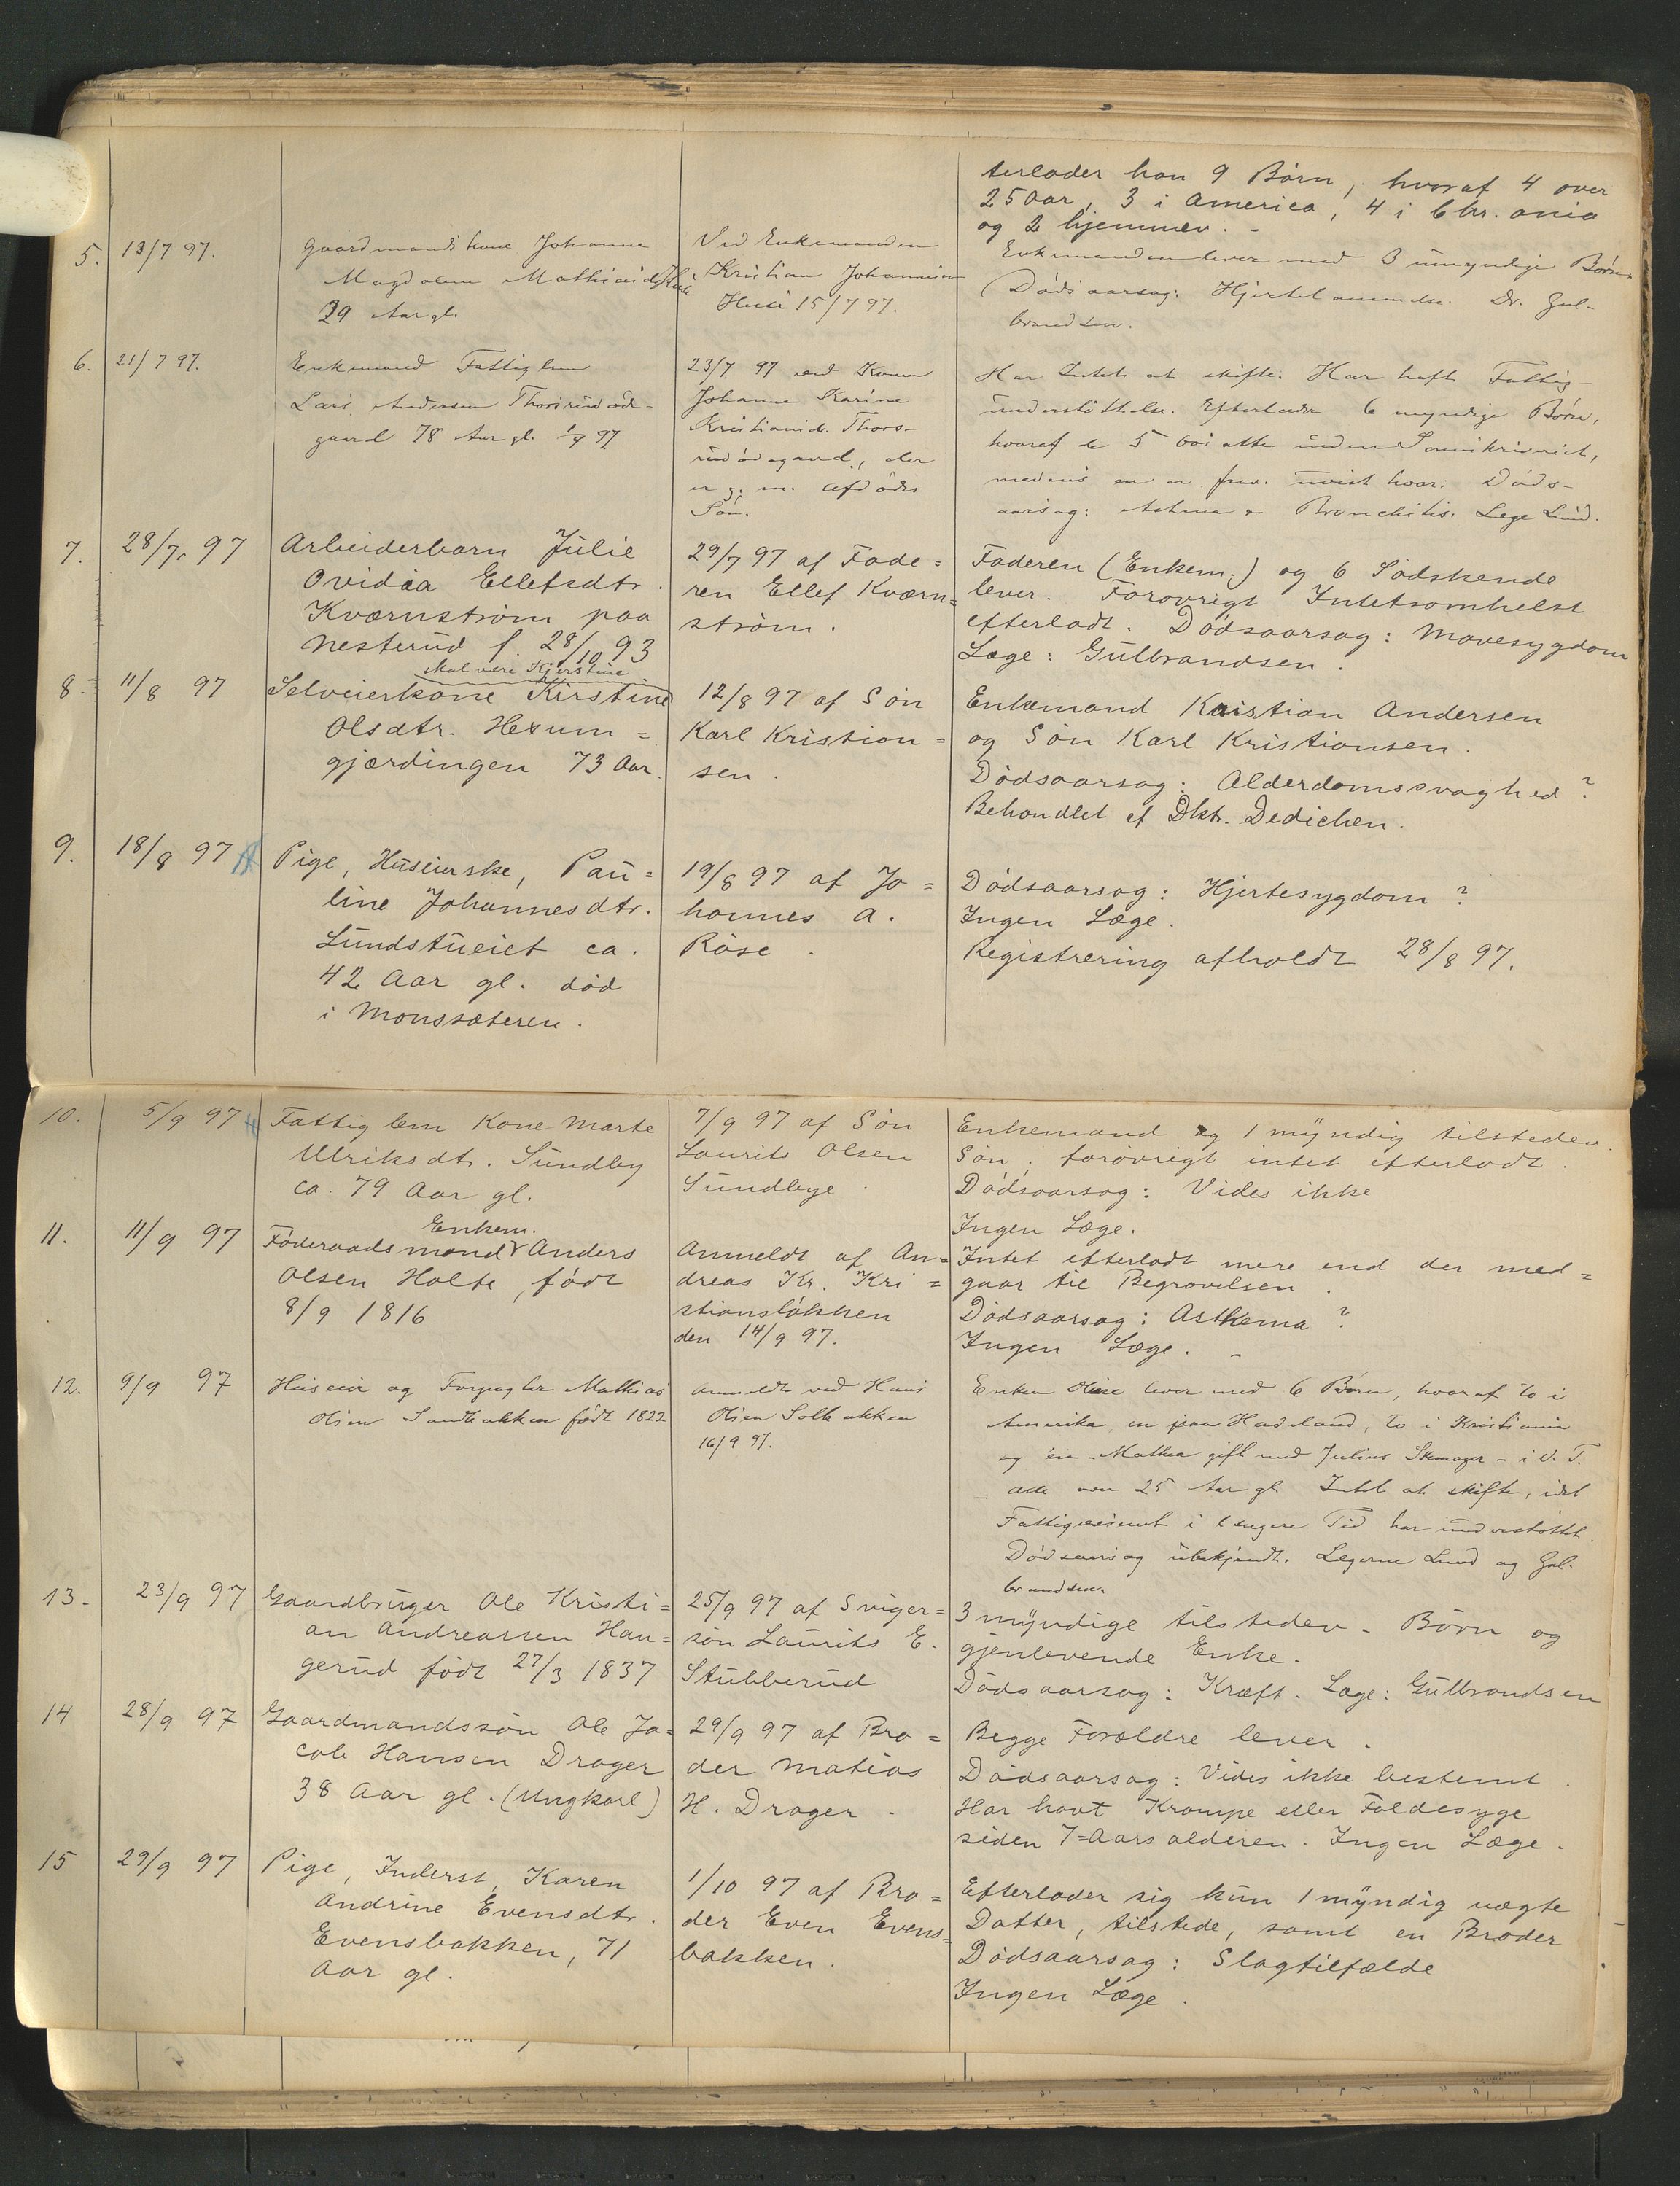 terlader han 9 Börn, hvoraf 4 over
25 Aar, 3 i America, 4 i Chr.ania
og 2 hjemmev. -
5. 13/7 97. Gaardmandskone Johanne
Magdalene Mathiasd. Husé
29 Aar gl.
Ved Enkemanden
Kristian Johannesen
Husé 15/7 97.
Enkemanden lever med 3 umyndige Börn.
Dödsaarsag: Hjertelammelse. Dr. Gul-
brandsen.
6. 21/7 97. Enkemand Fattiglem
Lars Andersen Thorsrudöde-
gaard 78 Aar gl. 97
23/7 97 ved Konen
Johanne Karine
Kristiansd. Thors-
rudödegaard, der
er g. m. Afdödes
Sön.
Har Intet at skifte. Har havt Fattig-
understöttelse. Efterlader 6 myndige Börn,
hvoraf de 5 bosatte under Sorenskriveriet,
medens en er frav. uvist hvor. Döds-
aarsag: Astma & Bronchitis. Læge Lund.
7. 28/7 97 Arbeiderbarn Julie
Ovidia Ellefsdtr.
Kværnström paa
Nesterud f. 28/10 93
29/7 97 af Fade=
ren Ellef Kværn=
ström.
Faderen (Enkem.) og 6 Södskende
lever. Forövrigt Intetsomhelst
efterladt. Dödsaarsag: Mavesygdom
Læge: Gulbrandsen.
8. 11/8 97 skal være Kjerstine
Selveierkone Kirstine
Olsdtr. Hexum=
gjærdingen 73 Aar.
12/8 97 af Sön
Karl Kristian=
sen.
Enkemand Kristian Andersen
og Sön Karl Kristiansen.
Dödsaarsag: Alderdomssvaghed?
Behandlet af Dktr. Dedichen.
9. 18/8 97 Pige, Huseierske, Pau=
line Johannesdtr.
Lundstueiet ca.
42 Aar gl. död
i Monssæteren.
19/8 97 af Jo=
hannes A.
Röse.
Dödsaarsag: Hjertesygdom?
Ingen Læge.
Registrering afholdt 28/8 97.
10. 5/9 97 Fattiglem Kone Marte
Ulriksdtr. Sundby
ca. 79 Aar gl.
7/9 97 af Sön
Laurits Olsen
Sundbye.
Enkemand og 1 myndig tilstedev.
Sön. forövrigt intet efterladt.
Dödsaarsag: Vides ikke
Ingen Læge.
11. 11/9 97 Enkem.
Föderaadsmand Anders
Olsen Holte, födt
8/9 1816
Anmeldt af An=
dreas Kr. Kri=
stianslökken
den 14/9 97.
Intet efterladt mere end der med=
gaar til Begravelsen.
Dödsaarsag: Asthema?
Ingen Læge. -
12. 9/9 97 Huseier og Forpagter Mathias
Olsen Sandbakken født 1822
Anmeldt ved Hans
Olsen Solbakken
16/9 97.
Enken Olise lever med 6 Børn, hvoraf to i
Amerika, en paa Hadeland, to i Kristiania
og én - Mathea gift med Julius Skomager - i V. T.
alle over 25 Aar gl. Intet at skifte, idet
Fattigvæsenet i længere Tid har understøttet.
Dödsaarsag ubekjendt. Lægerne Lund og Gul-
brandsen.
13. 23/9 97 Gaardbruger Ole Kristi=
an Andreassen Hau=
gerud födt 27/3 1837
25/9 97 af Sviger=
sön Laurits E.
Stubberud
3 myndige tilstedev. Börn og
gjenlevende Enke.
Dödsaarsag: Kræft. Læge: Gulbrandsen
14 28/9 97 Gaardmandssön Ole Ja=
cob Hansen Drager
38 Aar gl. (Ungkarl)
29/9 97 af Bro=
der Matias
H. Drager.
Begge Forældre lever.
Dödsaarsag: Vides ikke bestemt.
Har havt Krampe eller Faldesyge
siden 7=Aarsalderen. Ingen Læge.
15 29/9 97 Pige, Inderst, Karen
Andrine Evensdtr.
Evensbakken, 71
Aar gl.
1/10 97 af Bro=
der Even Evens=
bakken.
Efterlader sig kun 1 myndig uægte
Datter, tilstede, samt en Broder
Dödsaarsag: Slagtilfælde
Ingen Læge.